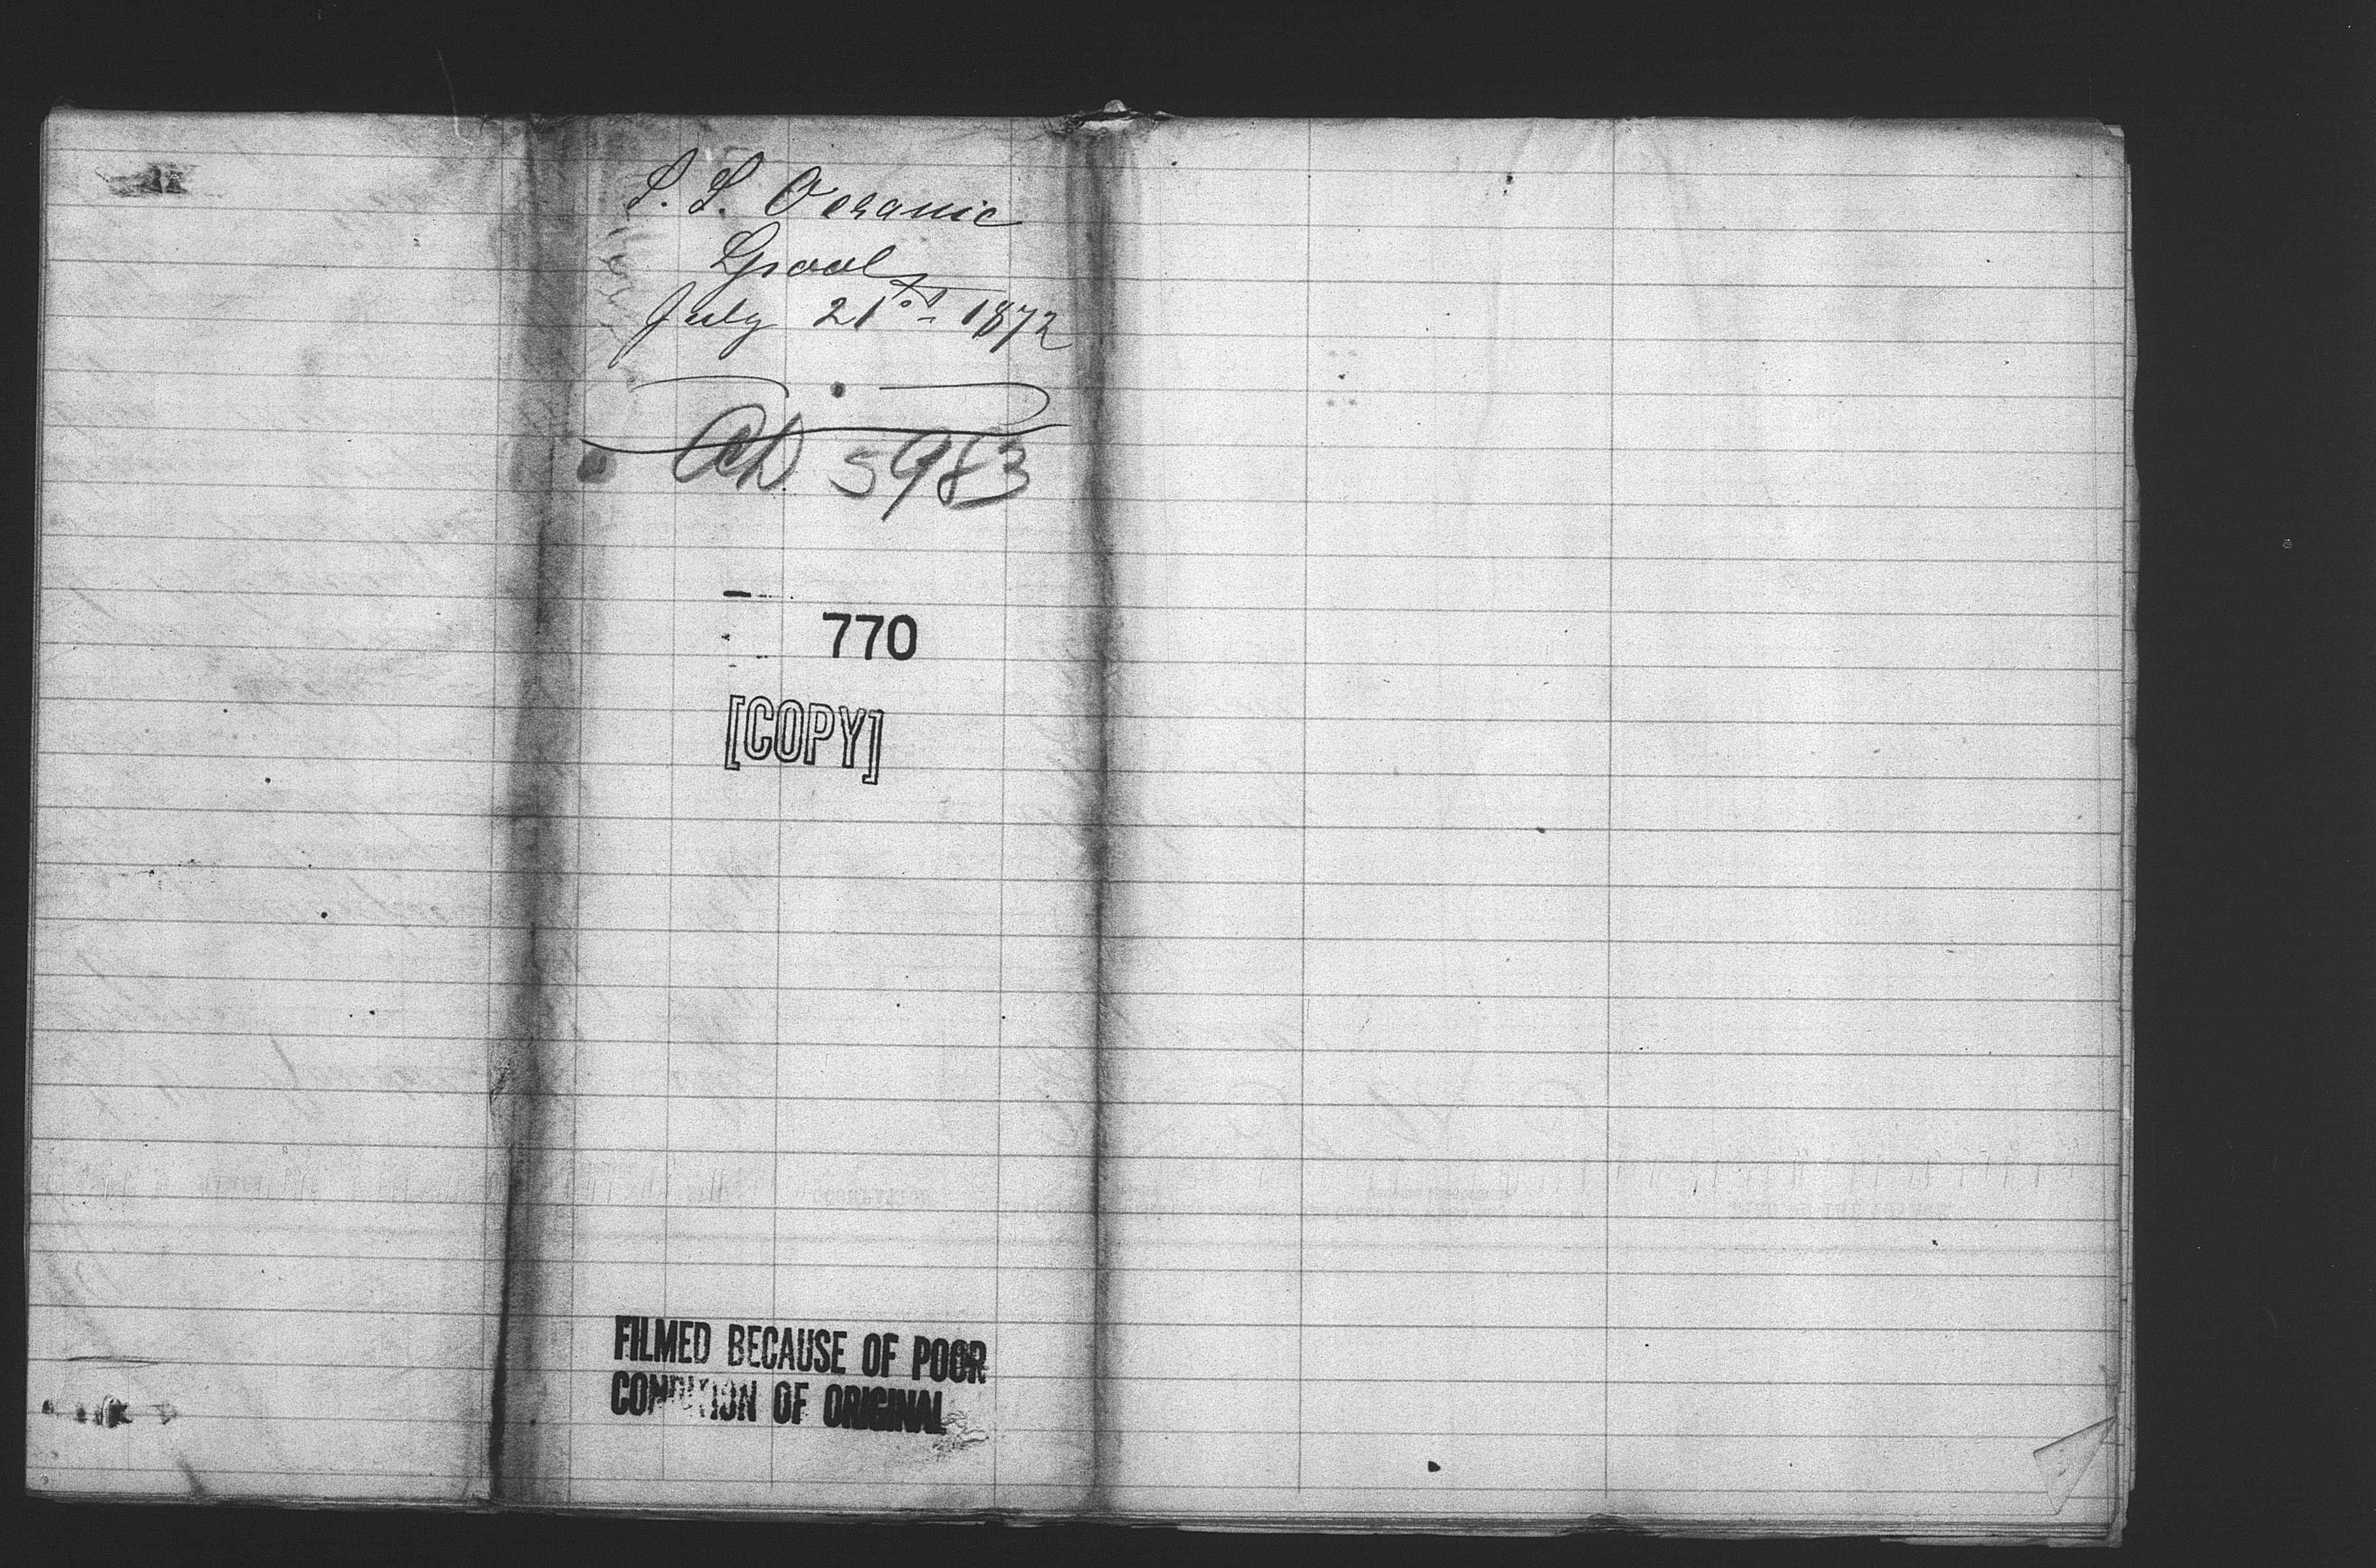 S. S. Oceanic
Lpool
July 21st 1872
5983
770
[COPY]
FILMED BECAUSE OF POOR
CONDITION OF ORIGINAL